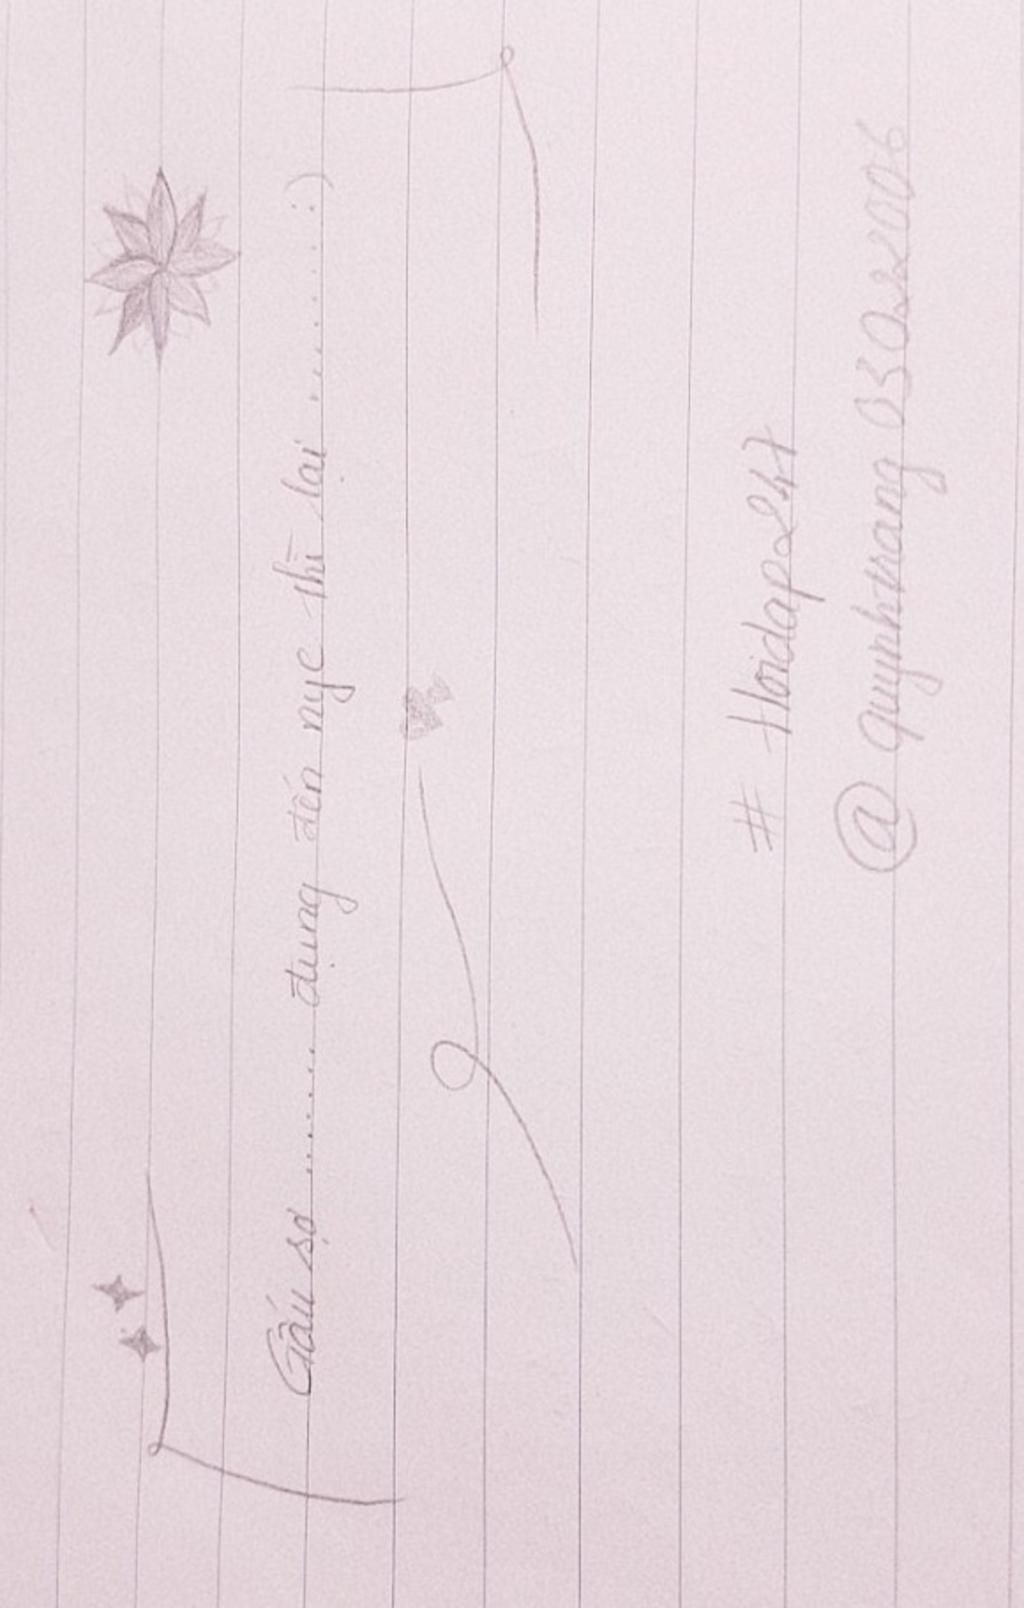 Gấu sợ ......... đụng đến nyc thì lại ............ :)
# Hoidap247
@ quynhtrang03022006